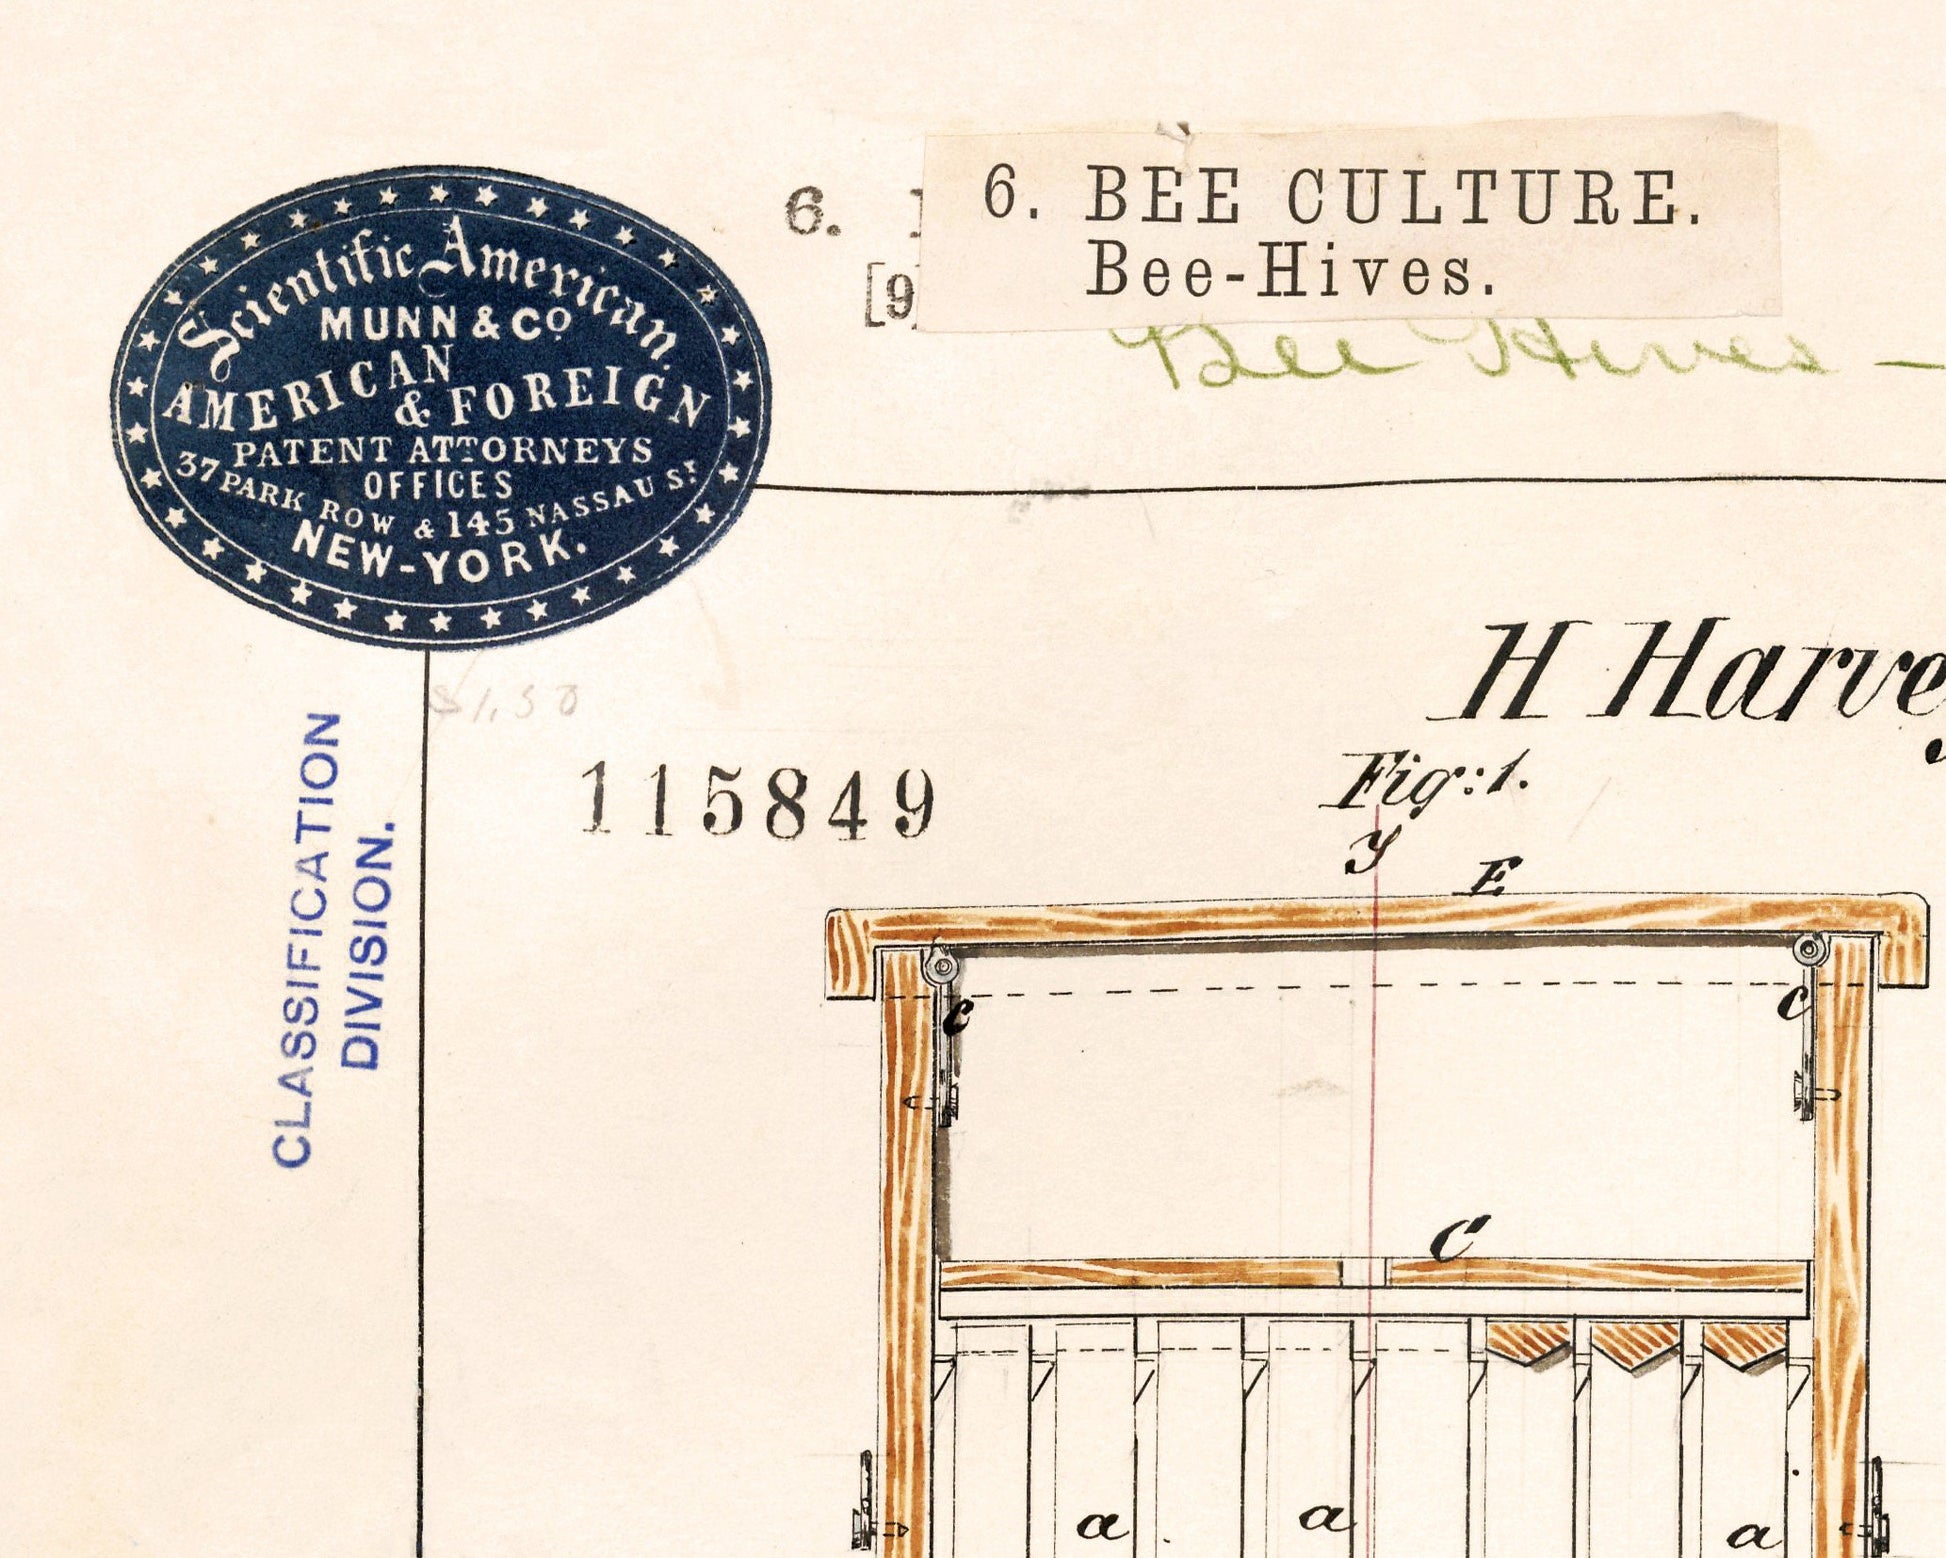 Scientific American
MUNN & CO
AMERICAN
& FOREIGN
PATENT ATTORNEYS
OFFICES
37 PARK ROW & 145 NASSAU ST
NEW-YORK.
6.
[9]
6. BEE CULTURE.
Bee-Hives.
Bee Hives —
$1.50
CLASSIFICATION
DIVISION.
115849
H Harve
Fig:1.
y
E
c
c
C
a
a
a